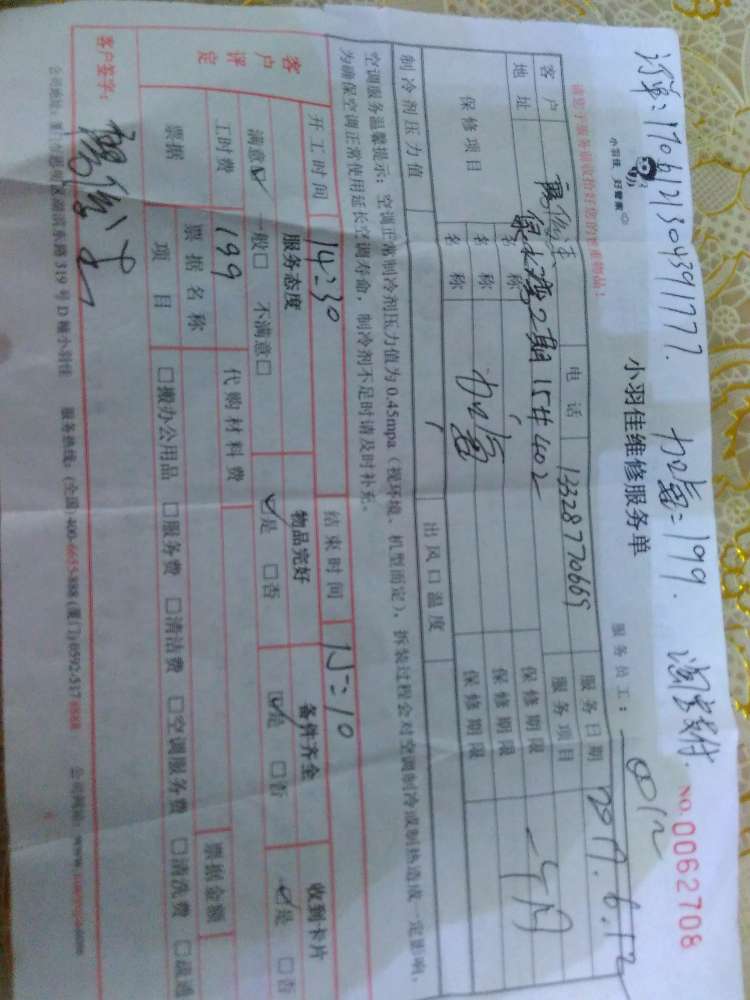 订单:170612130439177. 加氟=199. 淘宝支付.
小羽佳,好管家
小羽佳维修服务单
NO.0062708
请您于服务前收拾好您的贵重物品!
服务员工:
客户
电话 13328770669
服务日期 2017.6.12
地址 绿水湾2期15#402
服务项目
保修项目
名称
保修期限
名称 加氟
保修期限 一个月
名称
保修期限
制冷剂压力值
出风口温度
空调服务温馨提示:空调正常制冷剂压力值为0.45mpa(视环境、机型而定),拆装过程会对空调制冷或制热造成一定影响,
为确保空调正常使用延长空调寿命,制冷剂不足时请及时补充。
开工时间 14:30 结束时间 15:10
客户评定
服务态度 物品完好 备件齐全 收到卡片
满意☑ 一般□ 不满意□ ☑是 □否 ☑是 □否 ☑是 □否
工时费 199 代购材料费
票据
票据名称
票据金额
项目 □搬办公用品 □服务费 □清洁费 □空调服务费 □清洗费 □疏通
客户签字:
319号D幢小羽佳 服务热线:(全国)400-6655-888(厦门)0592-5178888 公司网站: